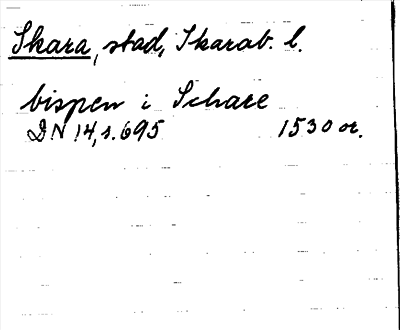 Skara, stad, Skarab. l.
bispen i Schare
DN 14, s. 695 1530 or.